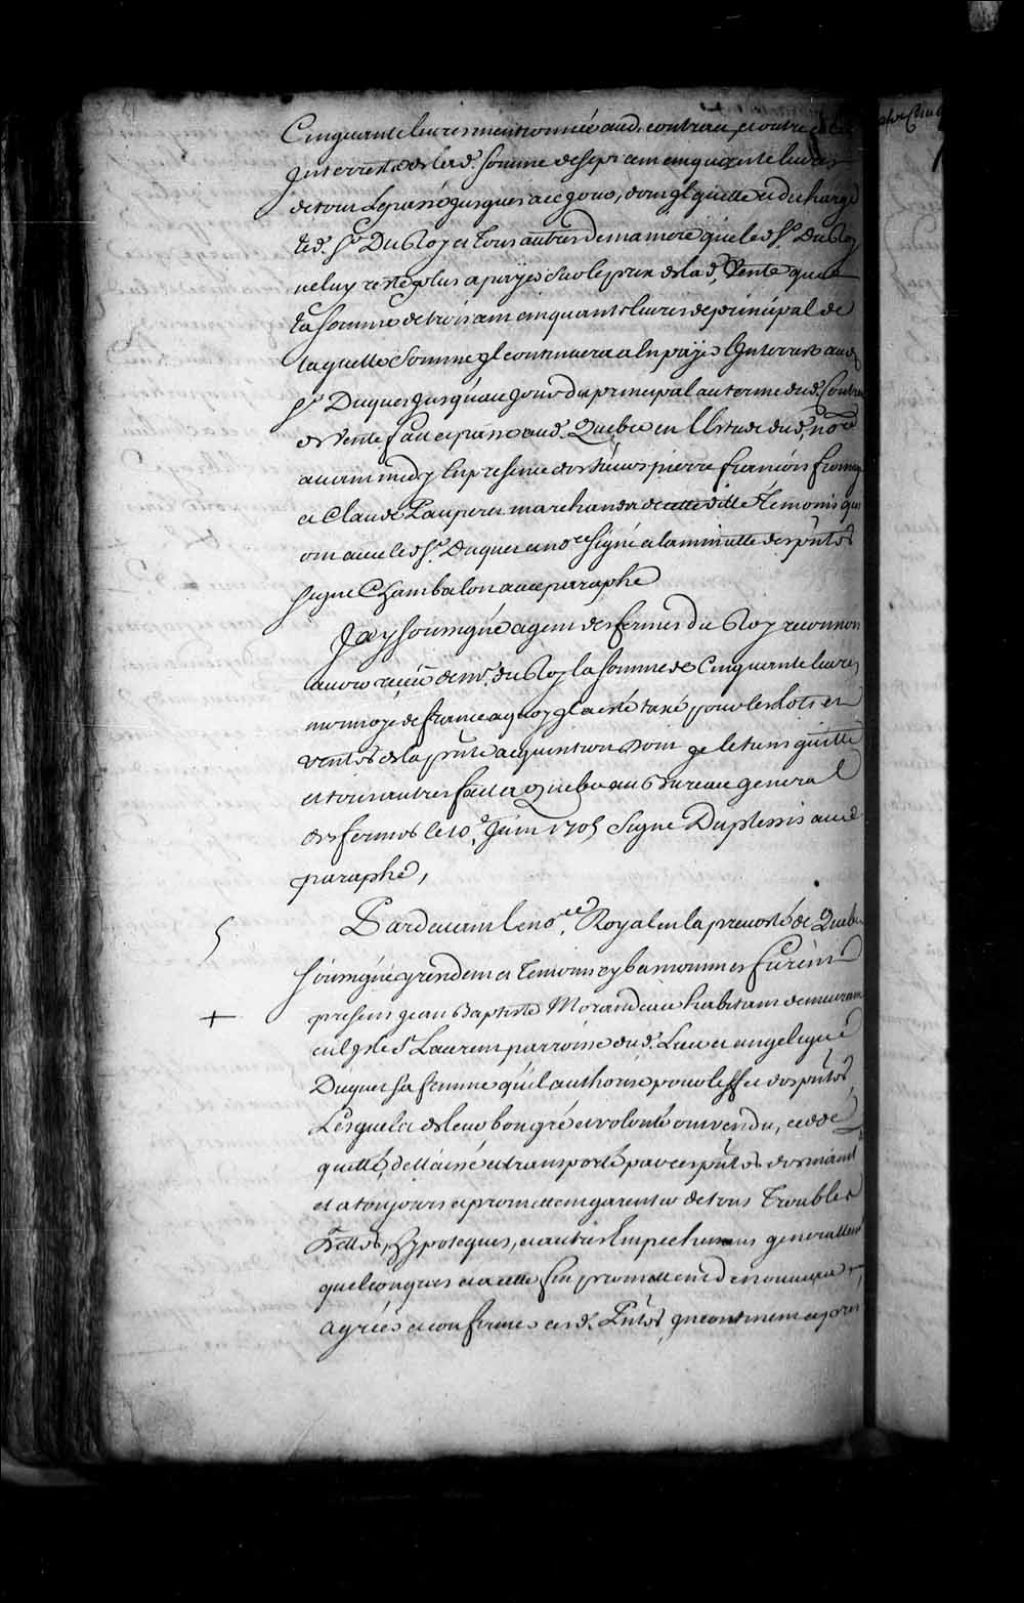 Cinquante livres mentionnée aud. contract, et outre
Jnterrests de lad. somme de sept cent cinquante livres
de tout le passé jusques a ce jour, dont jl quitte et decharge
led. Sr Du Roy et tous autres de maniere que led Sr Du Roy
ne luy reste plus a payer sur le prix de lad. Vente que
la somme de trois cent cinquante livres de principal de
laquelle somme jl continuera a en payer l'Jnterrest aud
Sr Duquet jusqu'au jour du principal au terme dud. Contra
de Vente fait et passé aud. Quebec en l'Estude dud. nore
avant midy En presence des sieurs pierre francois fromag
et Claude Pauperet marchands de cette ville Temoins qui
ont avec led Sr. Duquet et nore signé a la minutte des pntes
signé Chambalon avec paraphe
Jay soussigné agent des fermes du Roy reconnois
avoir receu de mr. du Roy la somme de Cinquante livres
monnoye de france a quoy jl a esté taxé pour les lots et
ventes de la pnte acquisition dont je le tiens quitte
et tous autres fait a Quebec au Bureau general
des fermes le 10e. Juin 1705 Signé Duplessis avec
paraphe,
5
Pardevant le nore. Royal en la prevosté de Quebec
soussigné y resident et temoins cy bas nommes furent
+
present jean Baptiste Morandeau habitant demeurant
en l'jsle St Laurent parroisse dud. Lieu et angelique
Duquet sa femme qu'il authorise pour l'effet des pntes
Lesquels de leur bon gré et volonté ont vendu, cedde
quitté, dellaissé et transporté par ces pntes des maint
et a toujours et promettent garentir de tous Troubles
Dettes, hypoteques, et autres Empechemens generallemt
quelconques et a cette fin promettent
agréer et confirmer cesd. Pntes, jncontinent apres